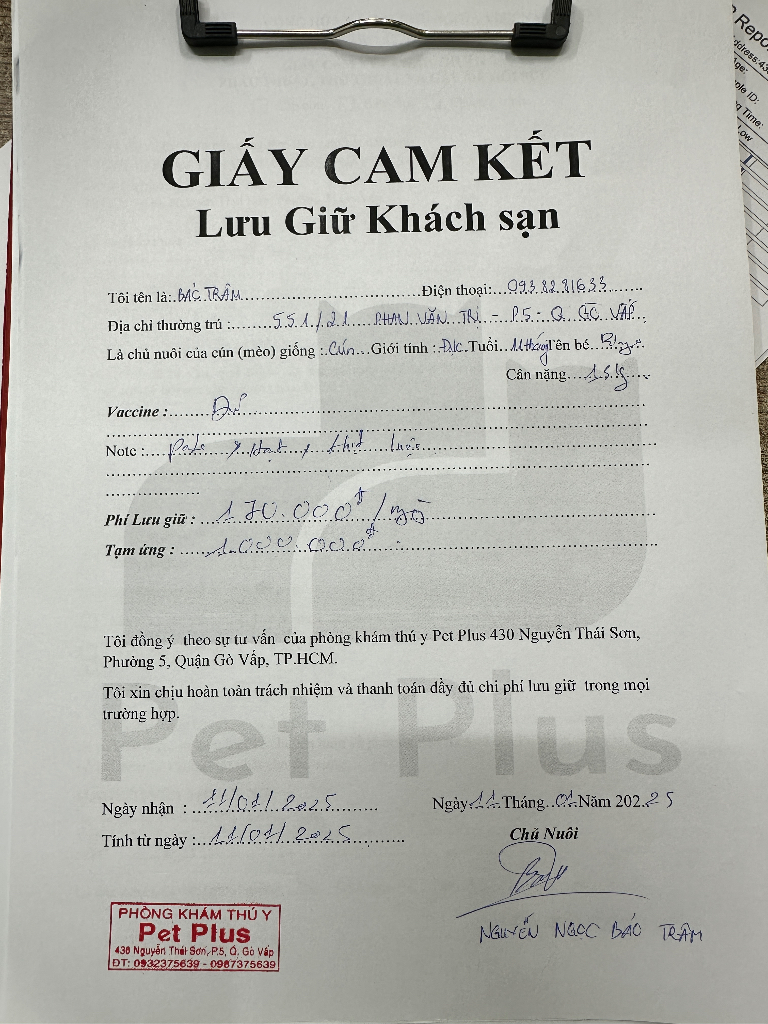 GIẤY CAM KẾT
Lưu Giữ Khách sạn
Tôi tên là: BẢO TRÂM Điện thoại: 0938281633
Địa chỉ thường trú : 551/21 PHAN VĂN TRỊ - P.5 - Q GÒ VẤP
Là chủ nuôi của cún (mèo) giống : Cún Giới tính : Đực Tuổi 11 tháng Tên bé
Cân nặng
Vaccine : Đủ
Note : Pate, hạt, thịt luộc
Phí Lưu giữ : 170.000đ / ngày
Tạm ứng : 1.000.000đ
Tôi đồng ý theo sự tư vấn của phòng khám thú y Pet Plus 430 Nguyễn Thái Sơn,
Phường 5, Quận Gò Vấp, TP.HCM.
Tôi xin chịu hoàn toàn trách nhiệm và thanh toán đầy đủ chi phí lưu giữ trong mọi
trường hợp.
Pet Plus
Ngày nhận : 11/01/2025 Ngày 11 Tháng 01 Năm 202 25
Tính từ ngày : 11/01/2025
Chủ Nuôi
NGUYỄN NGỌC BẢO TRÂM
PHÒNG KHÁM THÚ Y
Pet Plus
430 Nguyễn Thái Sơn, P.5, Q. Gò Vấp
ĐT: 0932375639 - 0967375639